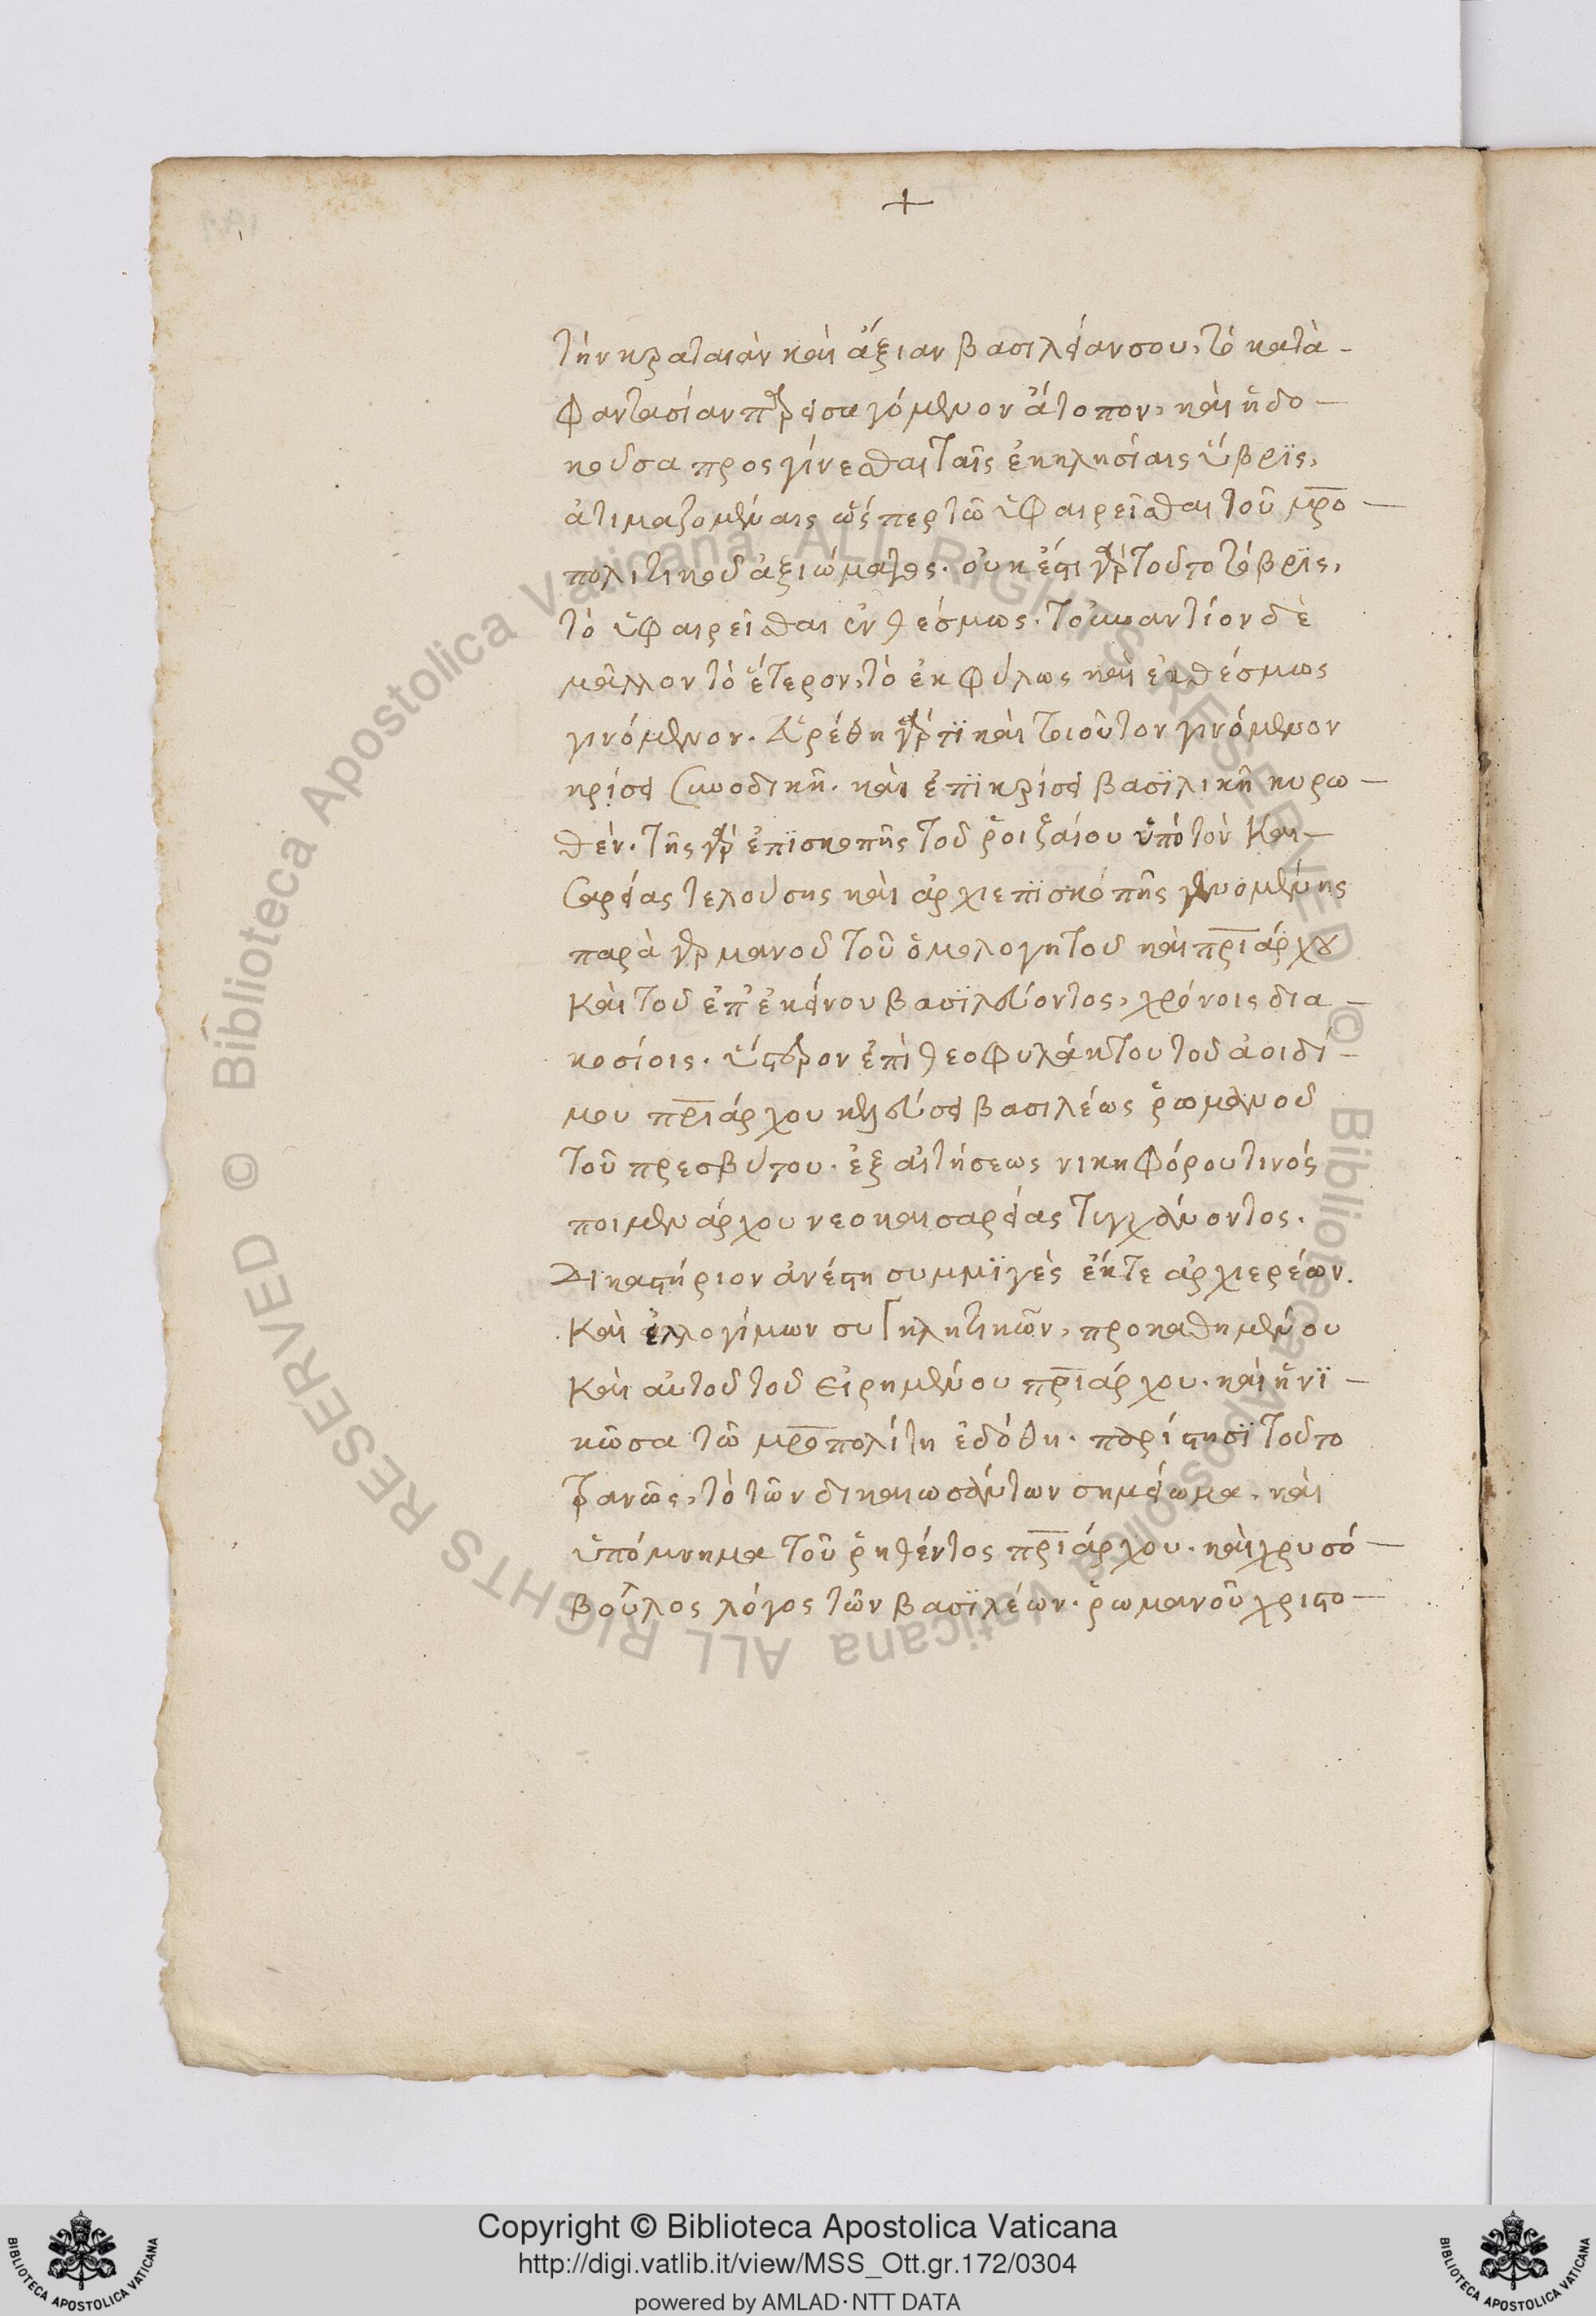 +
τὴν κραταιὰν καὶ ἀξίαν βασιλείαν σου, τὸ κατὰ –
φαντασίαν παρεισαγόμενον ἄτοπον, καὶ ἡ δο –
κοῦσα προσγίνεσθαι ταῖς ἐκκλησίαις ὕβρϊς,
ἀτιμαζομέναις ὥσπερ τῶ ὑφαιρεῖσθαι τοῦ μρο –
πολιτικοῦ ἀξιώματος. οὐκ ἔστι γὰρ τοῦτο τὸ ὕβρϊς,
τὸ ὑφαιρεῖσθαι ἐνθέσμως. τοὐναντίον δὲ
μᾶλλον τὸ ἕτερον, τὸ ἐκφύλως καὶ ἐκθέσμως
γινόμενον. εὑρέθη γάρ τϊ καὶ τοιοῦτον γινόμενον
κρίσει συνοδικῆ. καὶ ἐπϊκρίσει βασϊλικῆ κυρω –
θέν. τῆς γὰρ ἐπϊσκοπῆς τοῦ ῥοιζαίου ὑπὸ τὸν Και –
σαρείας τελούσης καὶ ἀρχιεπϊσκοπῆς γενομένης
παρὰ γερμανοῦ τοῦ ὁμολογητοῦ καὶ πριάρχου
Καὶ τοῦ ἐπ' ἐκείνου βασϊλεύοντος, χρόνοις δια –
κοσίοις. ὕστερον ἐπὶ θεοφυλάκτου τοῦ ἀοιδί –
μου πριάρχου κτήσεως βασιλέως ῥωμανοῦ
τοῦ πρεσβύτου. ἐξ αἰτήσεως νικηφόρου τινός
ποιμενάρχου νεοκαισαρείας τυγχάνοντος.
Δικαστήριον ἀνέστη συμμϊγὲς ἔκ τε ἀρχιερέων.
Καὶ ἐλλογίμων συγκλητικῶν, προκαθημένου
Καὶ αὐτοῦ τοῦ εἰρημένου πριάρχου. καὶ ἡ νϊ –
κῶσα τῶ μροπολίτη ἐδόθη. παρίστησϊ τοῦτο
τρανῶς, τὸ τῶν δικαιωσάντων σημείωμα. καὶ
ὑπόμνημα τοῦ ῥηθέντος πριάρχου. καὶ χρυσό –
βουλος λόγος τῶν βασϊλέων. ῥωμανοῦ χριστο –
Copyright © Biblioteca Apostolica Vaticana
http://digi.vatlib.it/view/MSS_Ott.gr.172/0304
powered by AMLAD·NTT DATA